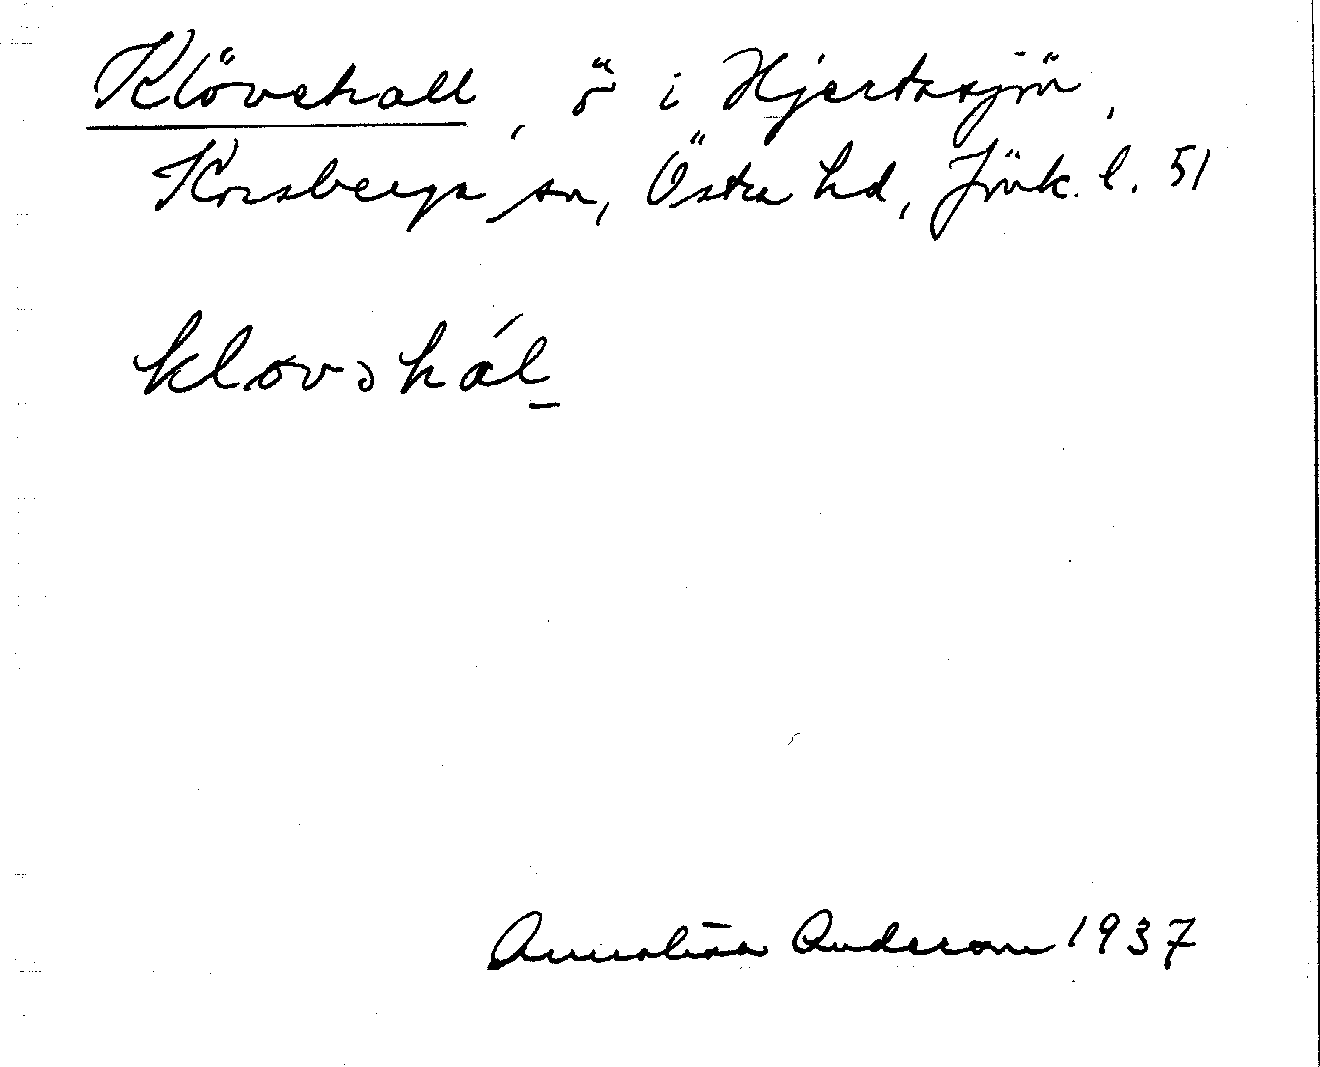 Klövehall, ö i Hjertasjön,
Korsberga sn, Östra hd, Jönk. l. 51
kløvəhál
Annalisa Anderson 1937